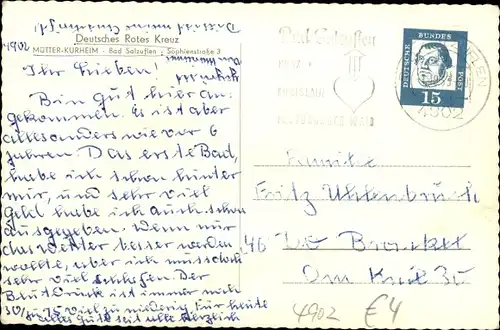 4902
Deutsches Rotes Kreuz
MÜTTER-KURHEIM · Bad Salzuflen · Sophienstraße 3
Ihr Lieben!
Bin gut hier an-
gekommen. Es ist aber
alles anders wie vor 6
Jahren. Das erste Bad,
habe ich schon hinter
mir, und sehr viel
Geld habe ich auch schon
ausgegeben. Wenn nur
das Wetter besser werden
wollte, aber ich muss doch
sehr viel schlafen. Der
Blutdruck ist immer noch
viel zu niedrig für heute
alles Gute seid alle herzlich
Bad Salzuflen
HERZ
KREISLAUF
DEUTSCHE
BUNDES
POST
15
4902
Familie
Fritz Uhlenbruch
46 Do Brackel
Am Knie 30
4902 €4